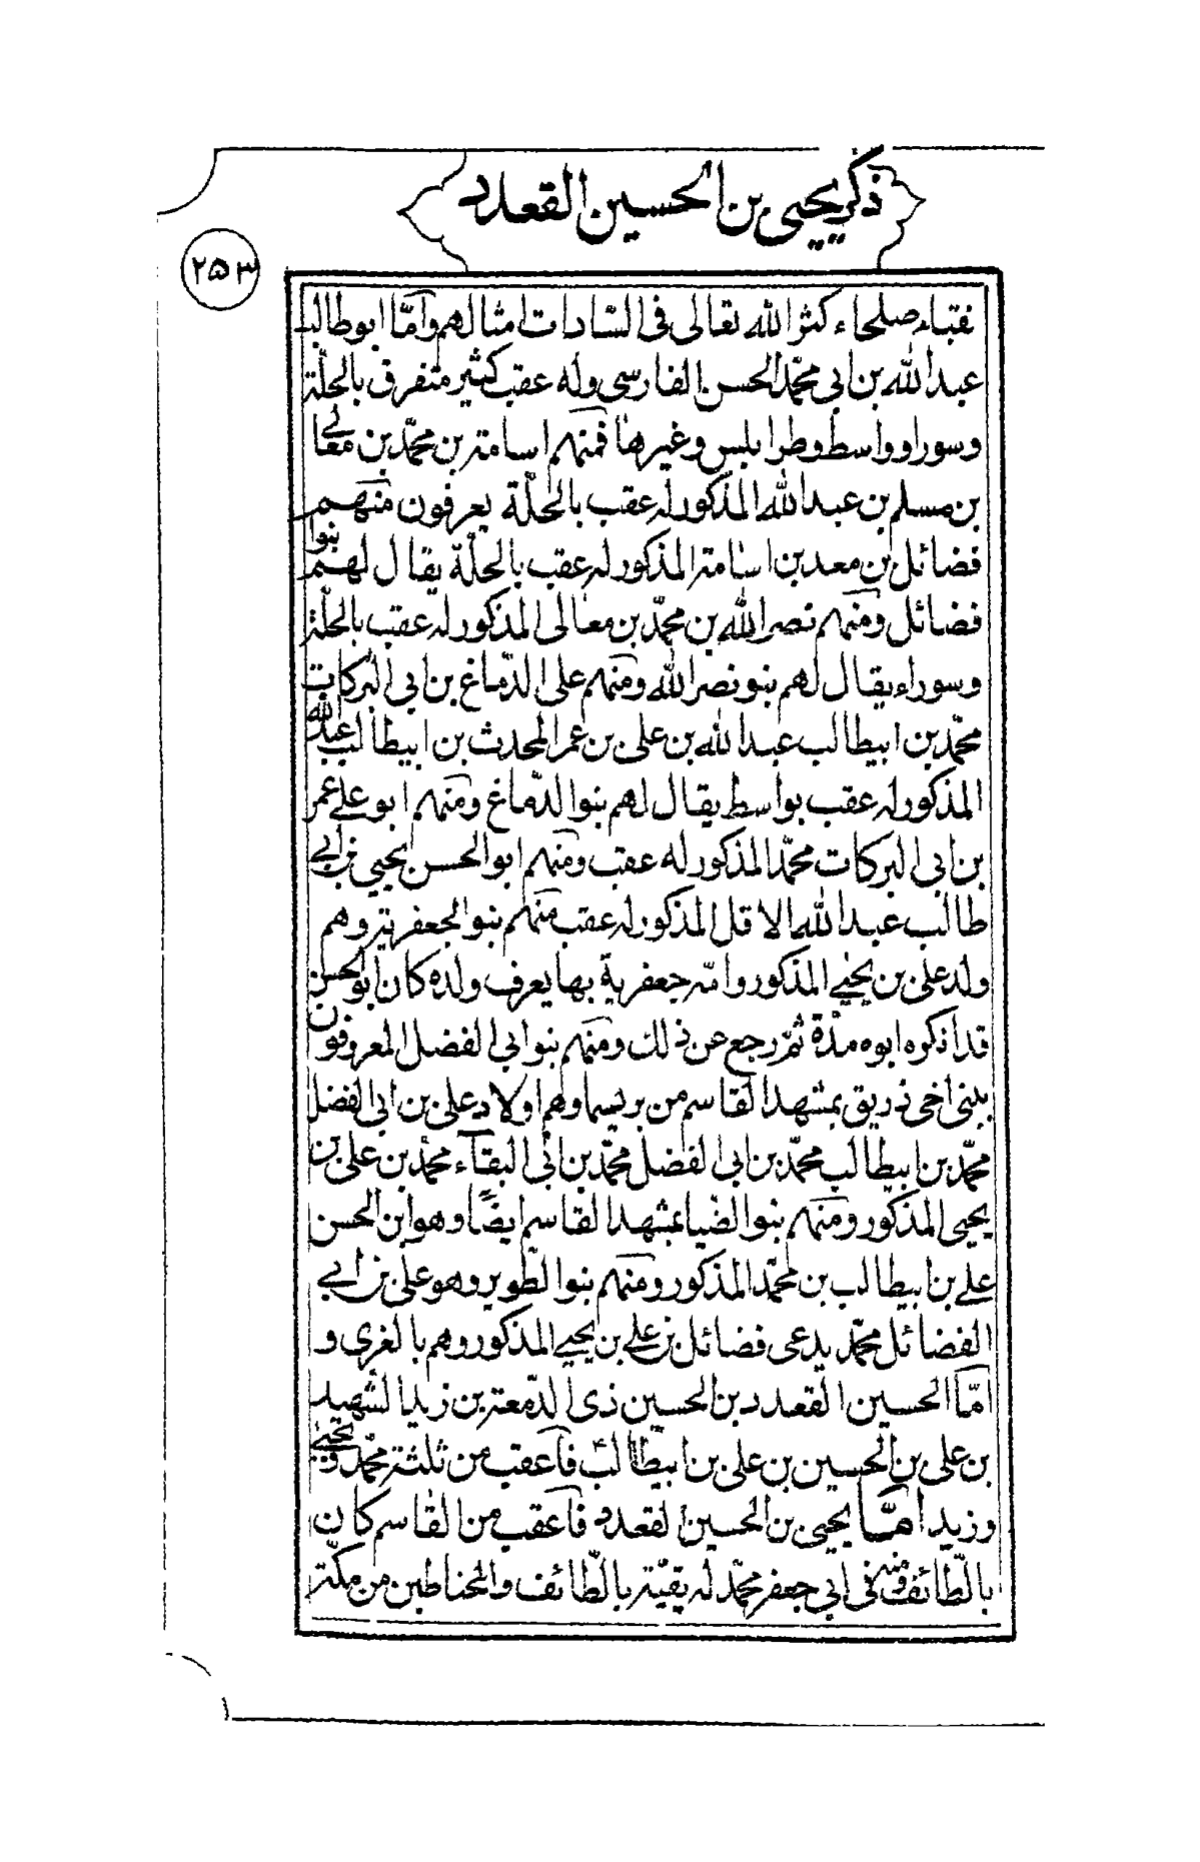 ذكر يحيى بن الحسين القعدد
٢٥٣
نقباء صلحاء كثر الله تعالى فى السّادات امثالهم وامّا ابوطالب
عبدالله بن ابى محمّد الحسن الفارسى وله عقب كثير متفرق بالحلّة
وسورا وواسط وطرابلس وغيرها فمنهم اسامة بن محمّد بن معالى
بن مسلم بن عبدالله المذكور له عقب بالحلّة يعرفون منهم
فضائل بن معد بن اسامة المذكور له عقب بالحلّة يقال لهم بنوا
فضائل ومنهم نصرالله بن محمّد بن معالى المذكور له عقب بالحلّة
وسوراء يقال لهم بنو نصرالله ومنهم على الدّماغ بن ابى البركات
محمّد بن ابيطالب عبدالله بن على بن عمر المحدث بن ابيطالب عبدالله
المذكور له عقب بواسط يقال لهم بنوا الدّماغ ومنهم ابو على عمر
بن ابى البركات محمّد المذكور له عقب ومنهم ابو الحسن يحيى بن ابى
طالب عبدالله الاقل المذكور له عقب منهم بنوا الجعفرية وهم
ولد على بن يحيى المذكور وامّه جعفرية بها يعرف ولده كان ابو الحسن
قد انكره ابوه مدّة ثمّ رجع عن ذلك ومنهم بنوا ابى الفضل المعروفون
ببنى اخى زريق بمشهد القاسم من بريسما وهم اولاد على بن ابى الفضل
محمّد بن ابيطالب محمّد بن ابى الفضل محمّد بن ابى البقآء محمّد بن على بن
يحيى المذكور ومنهم بنوا الضيا بمشهد القاسم ايضًا وهو ابن الحسن
على بن ابيطالب بن محمّد المذكور ومنهم بنوا الطّوير وهو على بن ابى
الفضائل محمّد يدعى فضائل بن على بن يحيى المذكور وهم بالغرى و
امّا الحسين القعدد بن الحسين ذى الدّمعة بن زيد الشّهيد
بن على بن الحسين بن على بن ابيطالب ع فاعقب من ثلثة محمّد ويحيى
وزيد امّا يحيى بن الحسين القعدد فاعقب من القاسم كان
بالطّائف ومنه فى ابى جعفر محمّد له بقيّة بالطّائف والحناطين من مكّة